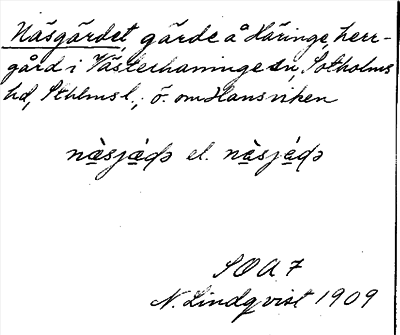 Näsgärdet, gärde å Häringe, herr-
gård i Västerhaninge sn, Sotholms
hd, Sthlms l.; ö. om Hansviken
nä̀sjä̀ḍə el. nä̀sjä́ḍə
SOA 7
N. Lindqvist 1909